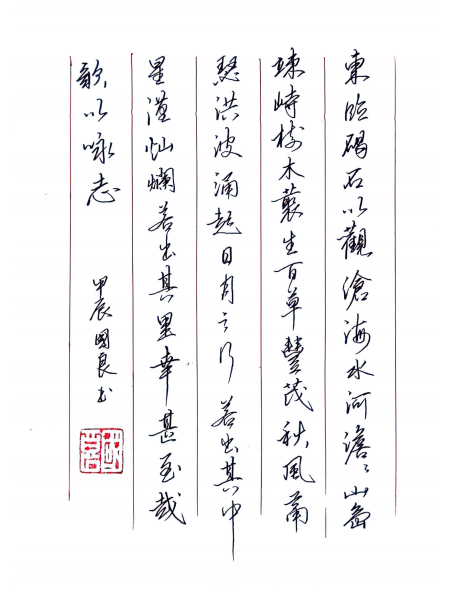 東临碣石以觀滄海水河澹々山島
竦峙樹木叢生百草豐茂秋風萧
瑟洪波涌起日月之行若出其中
星漢灿爛若出其里幸甚至哉
歌以咏志
甲辰國良书